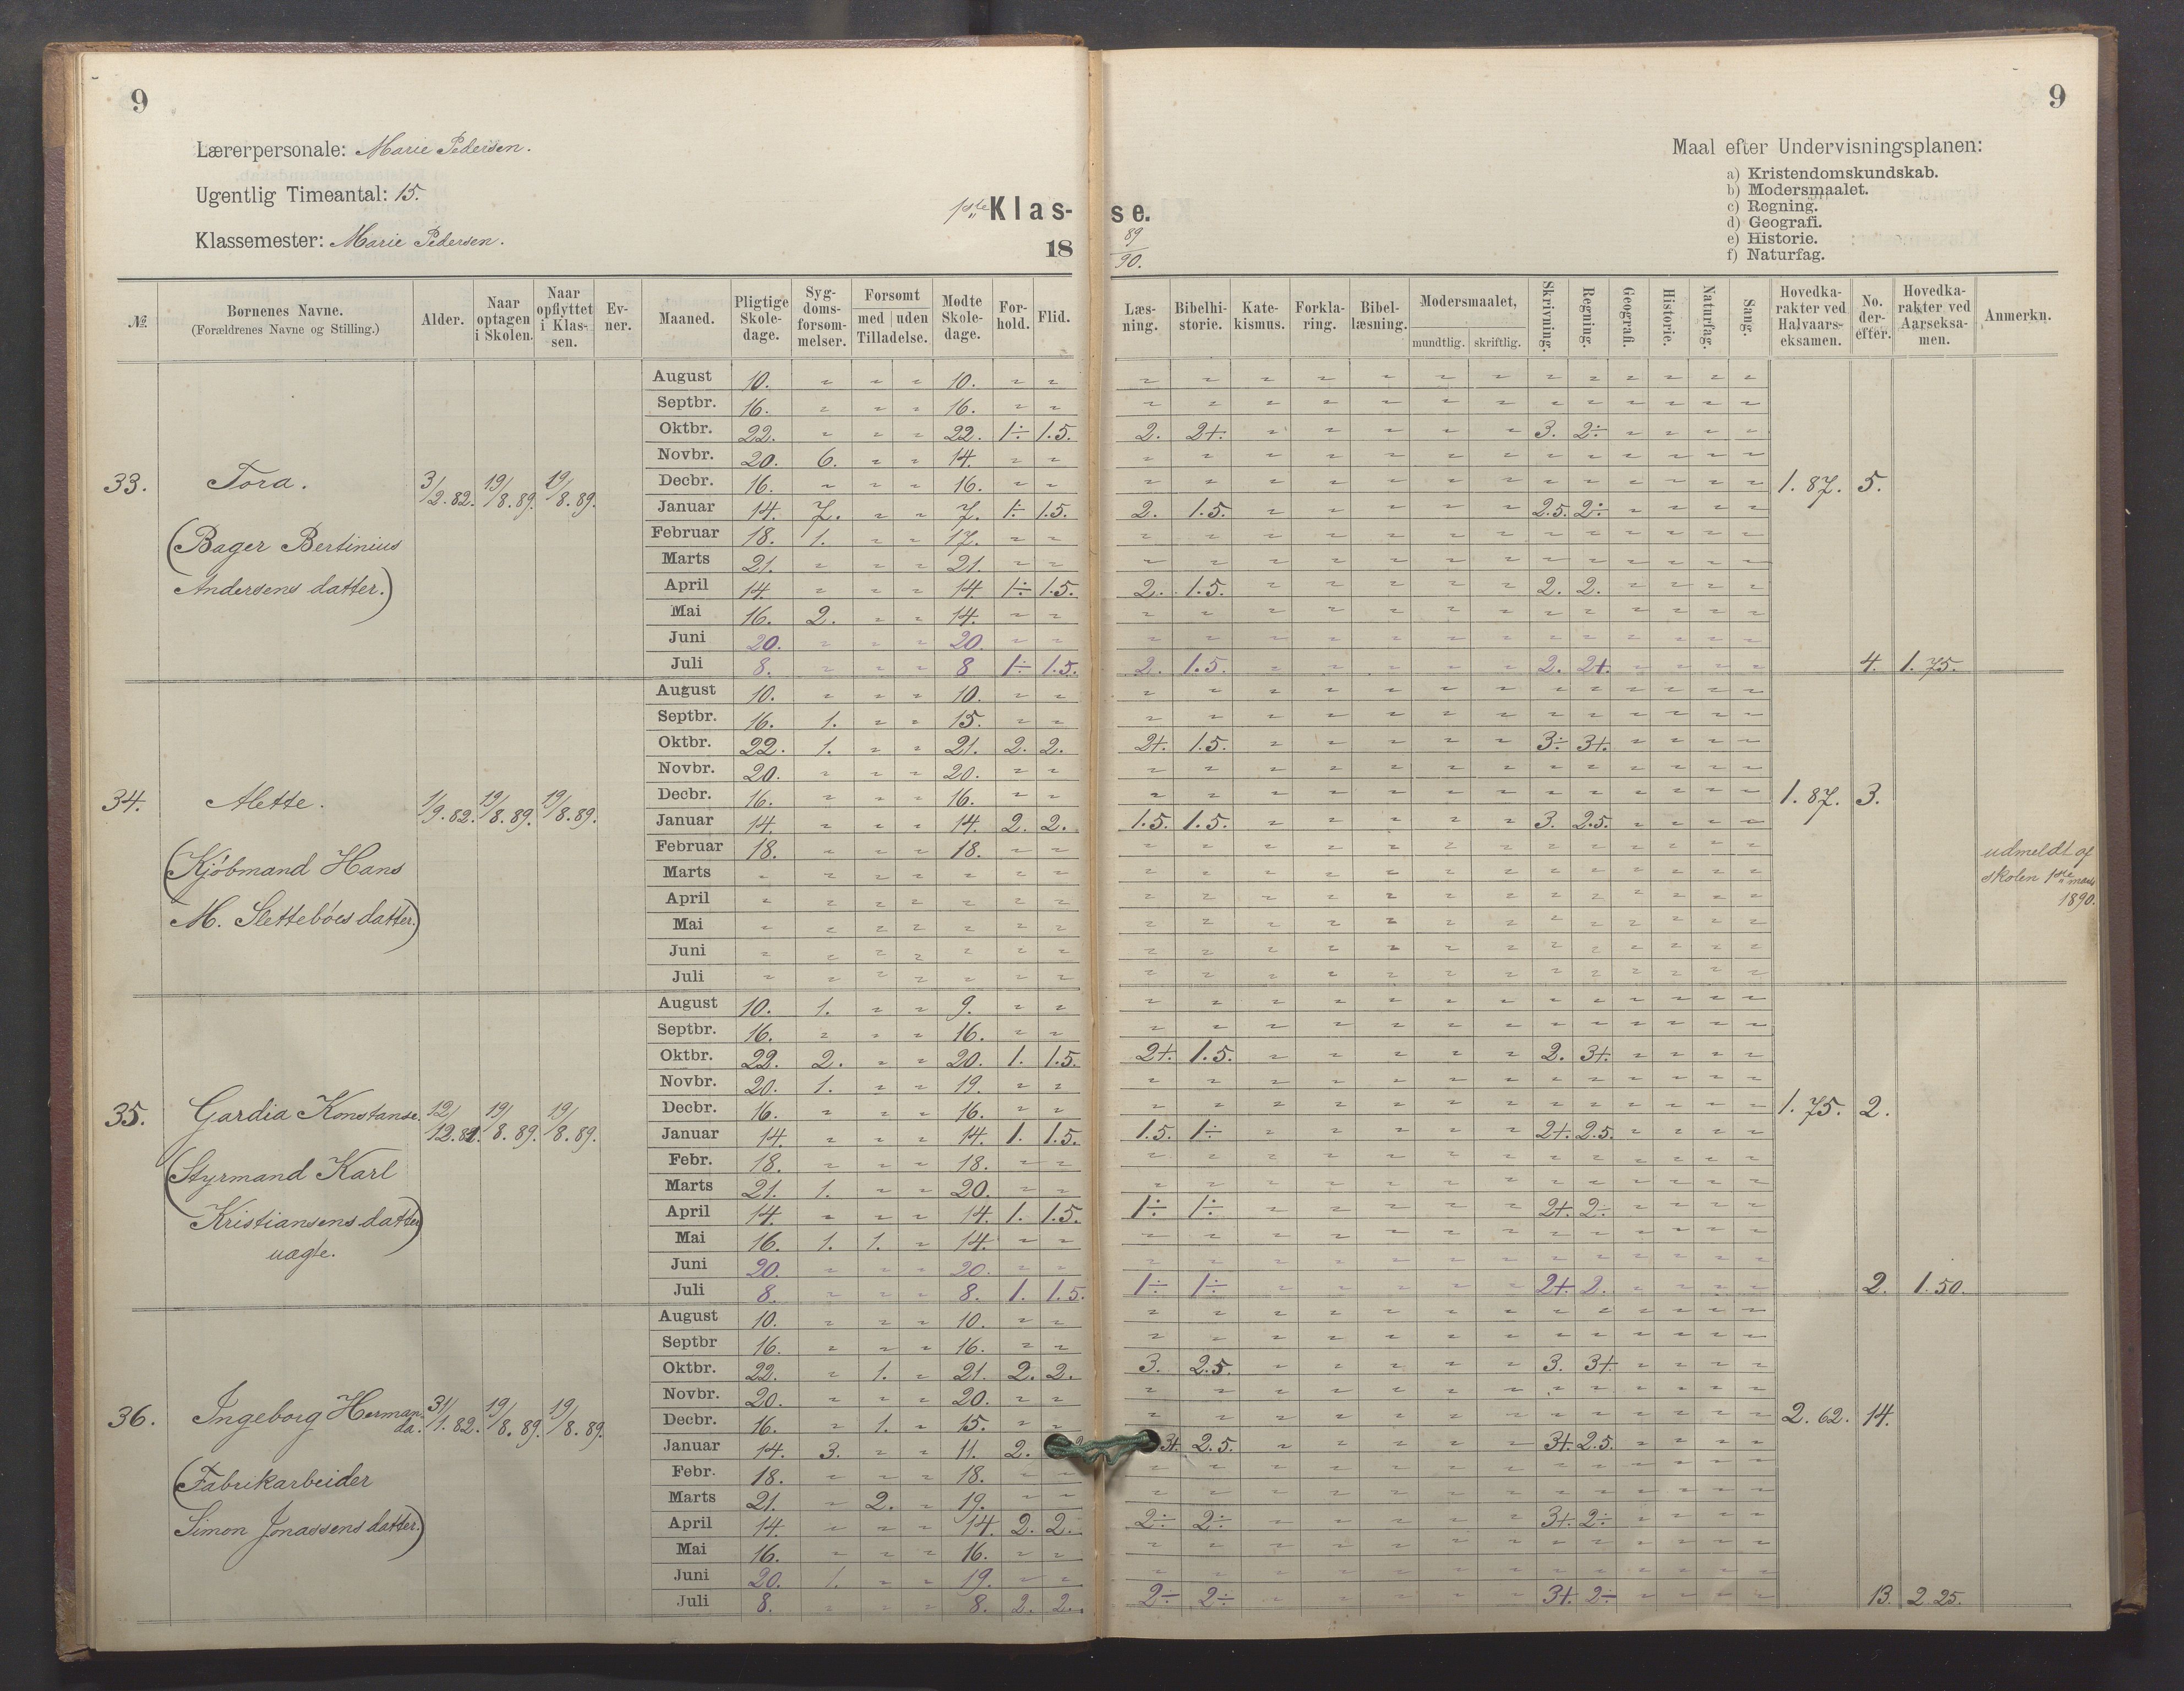 9
9
Lærerpersonale: Marie Pedersen.
Ugentlig Timeantal: 15.
Klassemester: Marie Pedersen.
1ste Klas- se.
18 89/90.
Maal efter Undervisningsplanen:
a) Kristendomskundskab.
b) Modersmaalet.
c) Regning.
d) Geografi.
e) Historie.
f) Naturfag.
№ Børnenes Navne. (Forældrenes Navne og Stilling.) Alder. Naar optagen i Skolen. Naar opflyttet i Klassen. Evner. Maaned. Pligtige Skoledage. Sygdomsforsømmelser. Forsømt med uden Tilladelse. Mødte Skoledage. Forhold. Flid. Læsning. Bibelhistorie. Katekismus. Forklaring. Bibellæsning. Modersmaalet, mundtlig. skriftlig. Skrivning. Regning. Geografi. Historie. Naturfag. Sang. Hovedkarakter ved Halvaarseksamen. No. derefter. Hovedkarakter ved Aarseksamen. Anmerkn.
33. Tora. 3/2.82. 19/8.89. 19/8.89.
(Bager Bertinius
Andersens datter.)
August 10. " " " 10. " " " " " " " " " " " " " " "
Septbr. 16. " " " 16. " " " " " " " " " " " " " " "
Oktbr. 22. " " " 22. 1÷ 1.5. 2. 2+. " " " " " 3. 2÷ " " " "
Novbr. 20. 6. " " 14. " " " " " " " " " " " " " " "
Decbr. 16. " " " 16. " " " " " " " " " " " " " " " 1.87. 5.
Januar 14. 7. " " 7. 1÷ 1.5. 2. 1.5. " " " " " 2.5. 2÷ " " " "
Februar 18. 1. " " 17. " " " " " " " " " " " " " " "
Marts 21. " " " 21. " " " " " " " " " " " " " " "
April 14. " " " 14. 1÷ 1.5. 2. 1.5. " " " " " 2. 2. " " " "
Mai 16. 2. " " 14. " " " " " " " " " " " " " " "
Juni 20. " " " 20. " " " " " " " " " " " " " " "
Juli 8. " " " 8 1÷ 1.5. 2. 1.5. " " " " " 2. 2+. " " " " 4. 1.75.
34. Alette. 1/9.82. 19/8.89. 19/8.89.
(Kjøbmand Hans
M. Slettebøes datter.)
August 10. " " " 10. " " " " " " " " " " " " " " "
Septbr. 16. 1. " " 15. " " " " " " " " " " " " " " "
Oktbr. 22. 1. " " 21. 2. 2. 2+. 1.5. " " " " " 3÷ 3+. " " " "
Novbr. 20. " " " 20. " " " " " " " " " " " " " " "
Decbr. 16. " " " 16. " " " " " " " " " " " " " " " 1.87. 3.
Januar 14. " " " 14. 2. 2. 1.5. 1.5. " " " " " 3. 2.5. " " " "
Februar 18. " " " 18. " " " " " " " " " " " " " " "
Marts " " " " " " " " " " " " " " " " " " " "
April " " " " " " " " " " " " " " " " " " " "
Mai " " " " " " " " " " " " " " " " " " " "
Juni " " " " " " " " " " " " " " " " " " " "
Juli " " " " " " " " " " " " " " " " " " " "
udmeldt af
skolen 1ste marts
1890.
35. Gardia Konstanse. 12/12.81. 19/8.89. 19/8.89.
(Styrmand Karl
Kristiansens datter)
uægte.
August 10. 1. " " 9. " " " " " " " " " " " " " " "
Septbr. 16. " " " 16. " " " " " " " " " " " " " " "
Oktbr. 22. 2. " " 20. 1. 1.5. 2+. 1.5. " " " " " 2. 3+. " " " "
Novbr. 20. 1. " " 19. " " " " " " " " " " " " " " "
Decbr. 16. " " " 16. " " " " " " " " " " " " " " " 1.75. 2.
Januar 14. " " " 14. 1. 1.5. 1.5. 1÷ " " " " " 2+. 2.5. " " " "
Febr. 18. " " " 18. " " " " " " " " " " " " " " "
Marts 21. 1. " " 20. " " " " " " " " " " " " " " "
April 14. " " " 14. 1. 1.5. 1÷ 1÷ " " " " " 2+. 2÷ " " " "
Mai 16. 1. 1. " 14. " " " " " " " " " " " " " " "
Juni 20. " " " 20. " " " " " " " " " " " " " " "
Juli 8. " " " 8. 1. 1.5. 1÷ 1÷ " " " " " 2+. 2. " " " " 2. 1.50.
36. Ingeborg Hermanda. 31/1.82. 19/8.89. 19/8.89.
(Fabrikarbeider
Simon Jonassens datter.)
August 10. " " " 10. " " " " " " " " " " " " " " "
Septbr 16. " " " 16. " " " " " " " " " " " " " " "
Oktbr. 22. " 1. " 21. 2. 2. 3. 2.5. " " " " " 3. 3+. " " " "
Novbr. 20. " " " 20. " " " " " " " " " " " " " " "
Decbr. 16. " 1. " 15. " " " " " " " " " " " " " " " 2.62. 14.
Januar 14. 3. " " 11. 2. 3+. 2.5. " " " " " 3+. 2.5. " " " "
Febr. 18. " " " 18. " " " " " " " " " " " " " " "
Marts 21. " 2. " 19. " " " " " " " " " " " " " " "
April 14. " " " 14. 2. 2. 2÷ 2÷ " " " " " 3+. 2÷ " " " "
Mai 16. " " " 16. " " " " " " " " " " " " " " "
Juni 20. 1. " " 19. " " " " " " " " " " " " " " "
Juli 8. " " " 8. 2. 2. 2÷ 2÷ " " " " " 3+. 2÷ " " " " 13. 2.25.